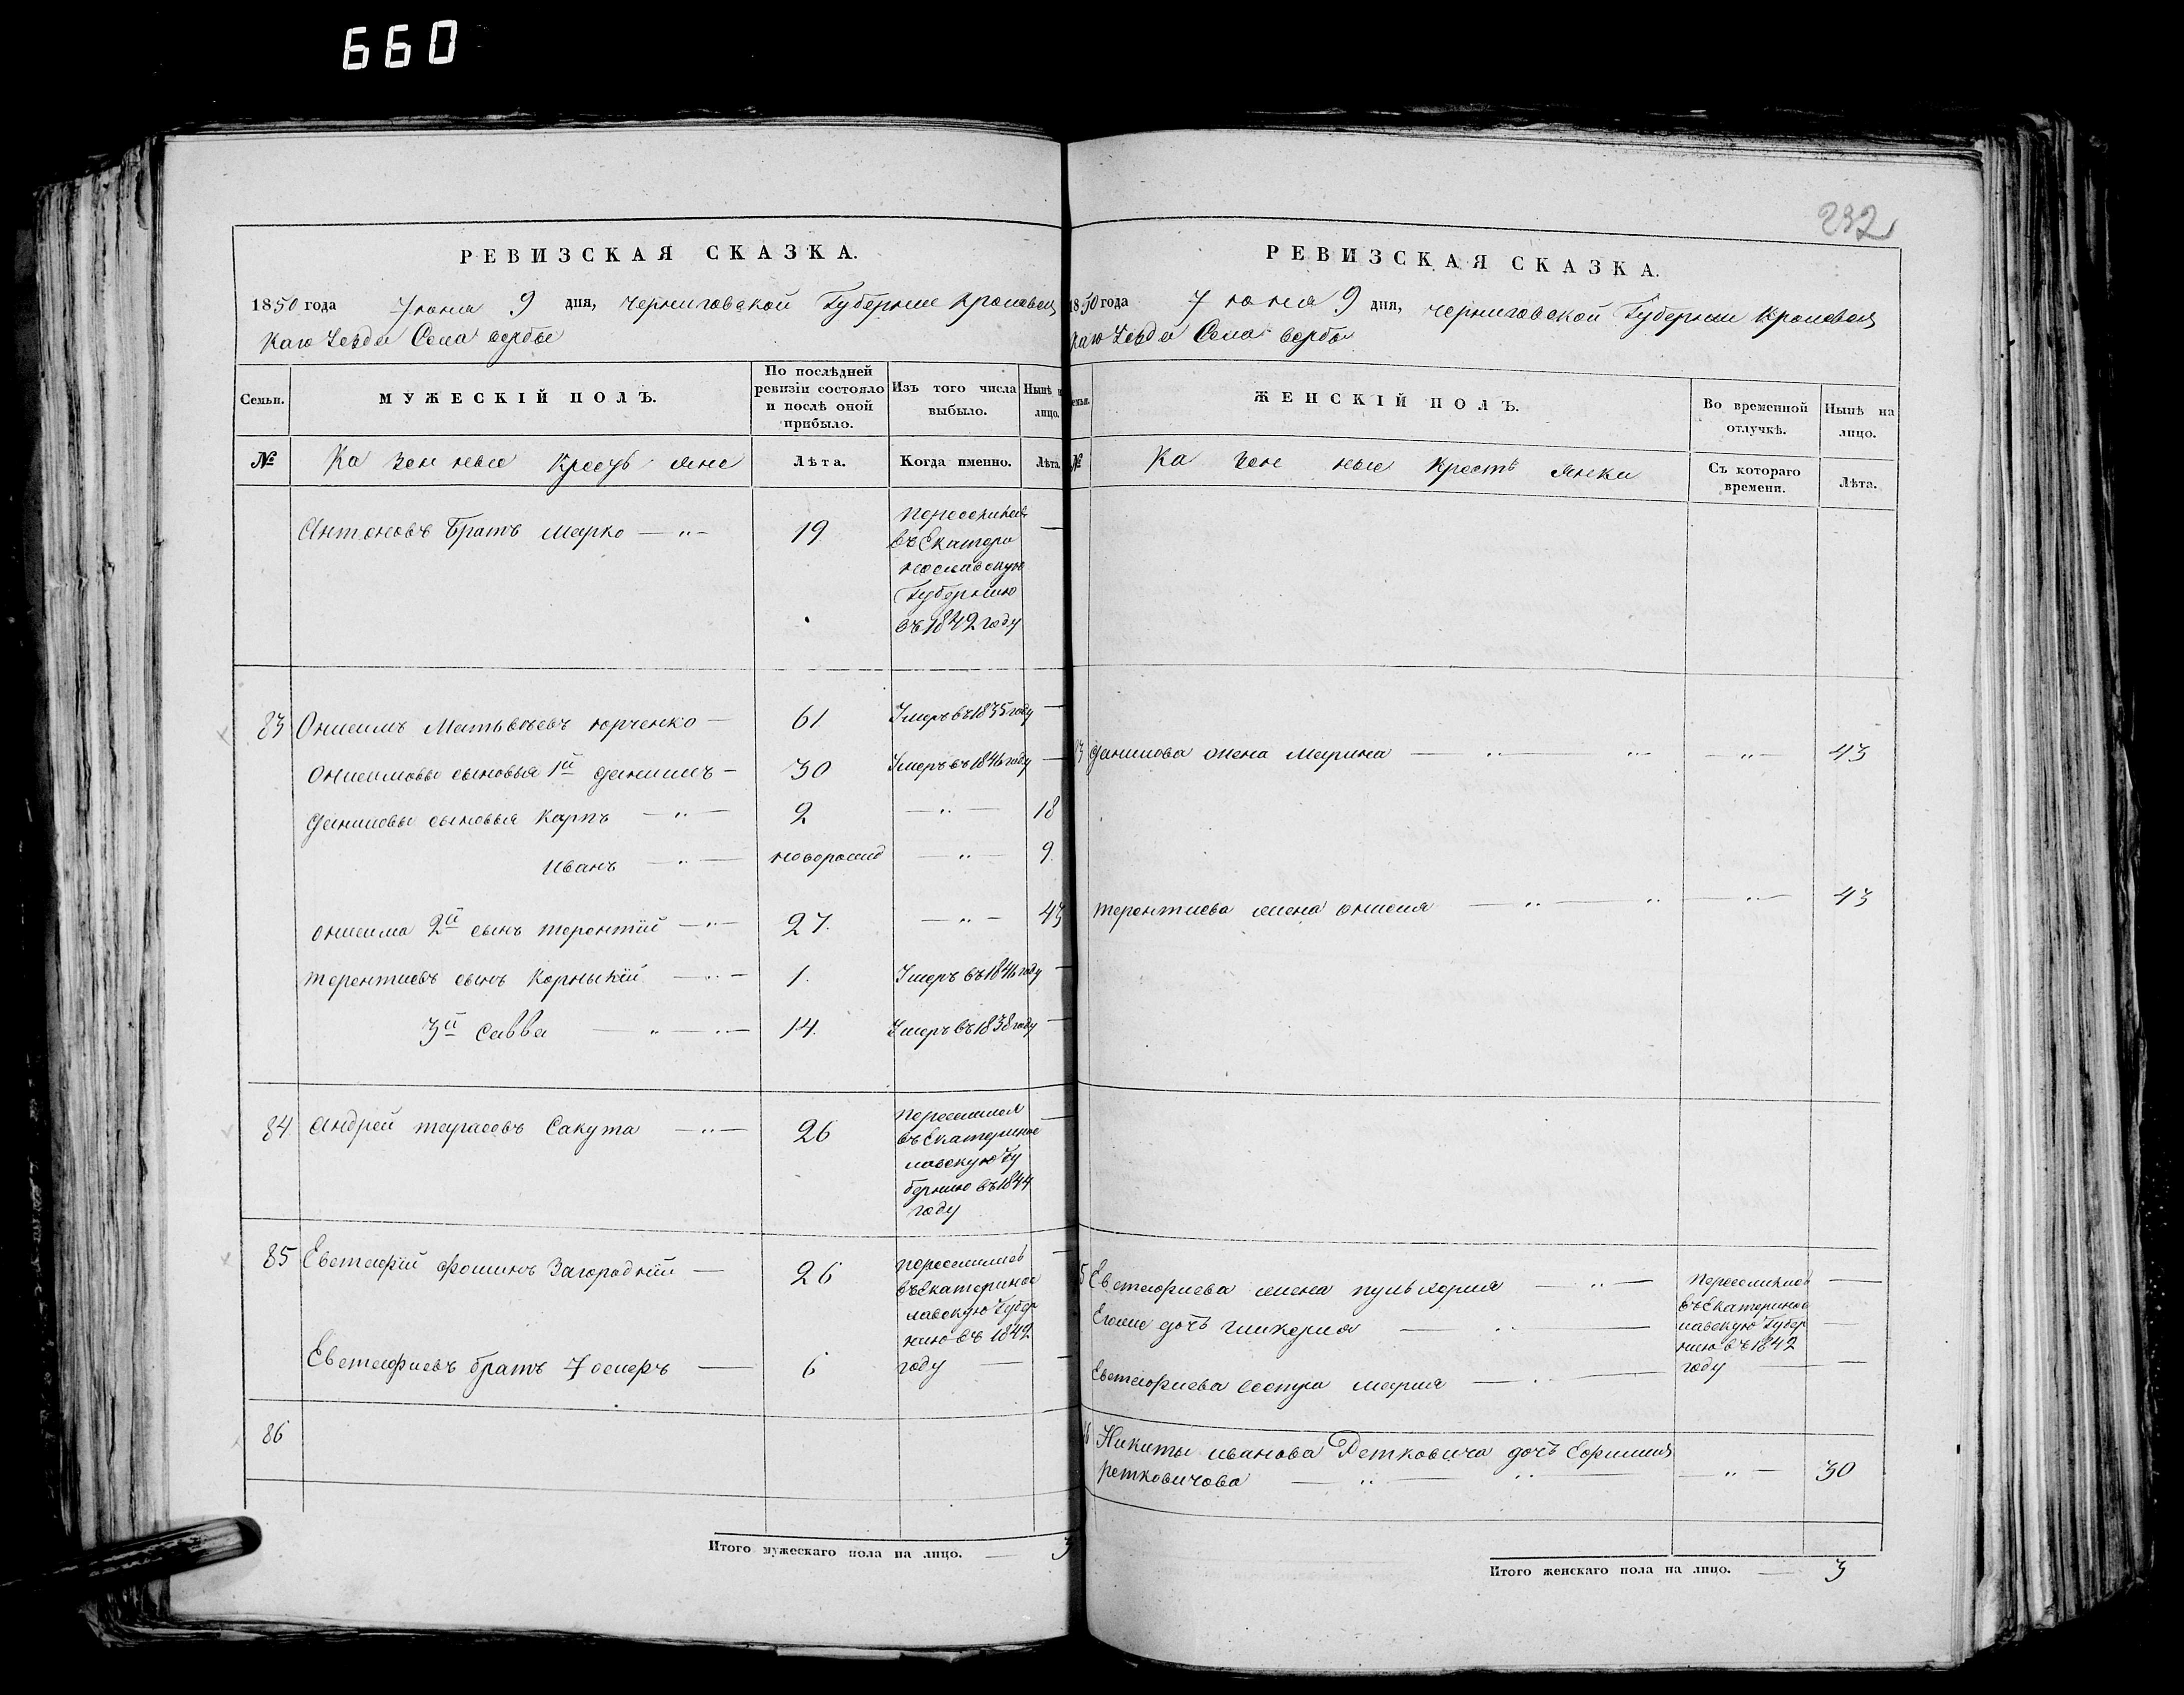 660
232
РЕВИЗСКАЯ СКАЗКА.
1850 года Июня 9 дня, Черниговской Губернии Кролевец
каго Уезда Села вербы
Семьи.
МУЖЕСКІЙ ПОЛЪ.
По послѣдней ревизіи состояло и послѣ оной прибыло.
Изъ того числа выбыло.
Нынѣ н лицо.
№
Казенные Крестьяне
Лѣта.
Когда именно.
Лѣта.
Антоновъ братъ Марко — „ — 19
переселился
въ Екатери
нославскую
Губернию
въ 1842 году —
83 Онисимъ Матвѣевъ Юрченко — 61 Умеръ въ 1835 году —
Онисимовы сыновья 1й Данишъ — 30 Умеръ въ 1846 году —
Даниловы сыновья Карпъ — „ — 2 — „ — 18
Иванъ — „ — новорожд — „ — 9
Онисима 2й сынъ Терентий — „ — 27. — „ — 43
Терентиевъ сынъ Корныкий — „ — 1. Умеръ въ 1846 году —
3й Савва — „ — „ — 14. Умеръ въ 1838 году —
84. Андрей Тарасовъ Сакута — „ — 26
переселился
въ Екатеринос
лавскую Гу
бернию въ 1844
году —
85 Евстафий Фоминъ Загородний — 26
переселился
въ Екатеринос
лавскую Губер
нию въ 1842
году —
Евстафиевъ братъ Иосифъ — 6
86
Итого мужескаго пола на лицо. — 3
РЕВИЗСКАЯ СКАЗКА.
1850 года Июня 9 дня, Черниговской Губернии Кролевец
каго Уезда Села вербы
емьи.
ЖЕНСКІЙ ПОЛЪ.
Во временной отлучкѣ.
Нынѣ на лицо.
№
Казенные Крестьянки
Съ котораго времени.
Лѣта.
Данилова жена Марина — „ — „ — — „ — 43
Терентиева жена Онисия — „ — „ — „ — 43
5 Евстафиева жена Пульхерия — „ —
Переселилися
въ Екатеринос
лавскую Губер
нию въ 1842
году —
Егоже дочь Гликерия —
Евстафиева сестра Мария —
6 Никиты Иванова Реткевича дочь Ефимия
реткевичева — „ — „ — „ — 30
Итого женскаго пола на лицо. — 3